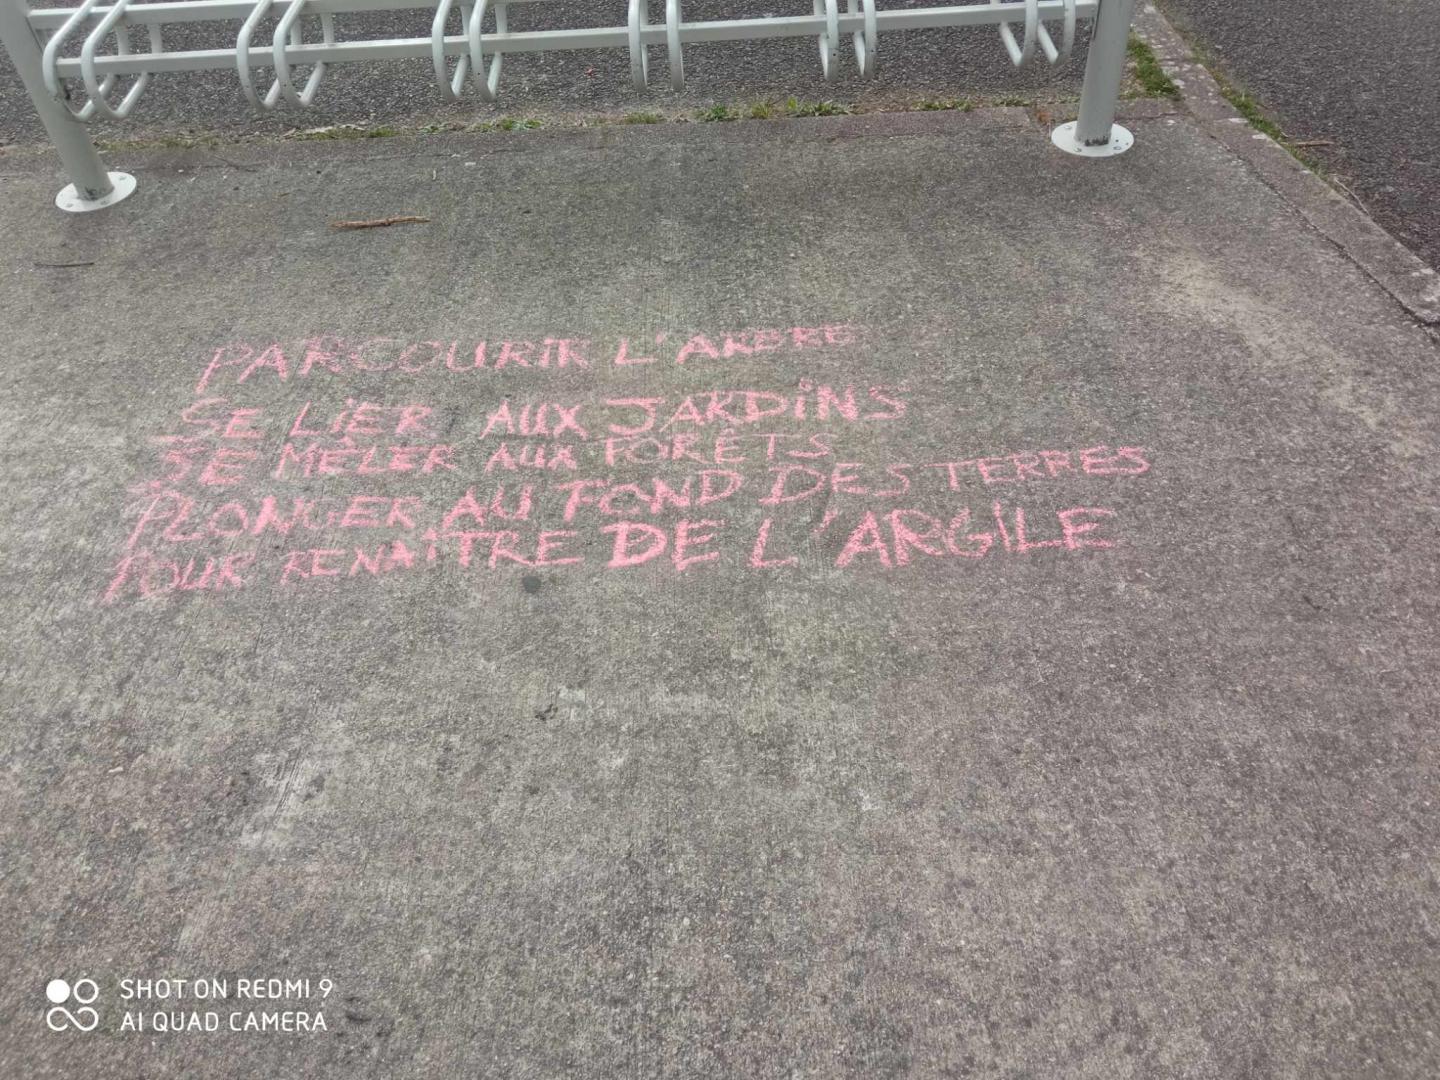 PARCOURIR L'ARBRE
SE LIER AUX JARDINS
SE MÊLER AUX FORÊTS
PLONGER AU FOND DES TERRES
POUR RENAÎTRE DE L'ARGILE
SHOT ON REDMI 9
AI QUAD CAMERA